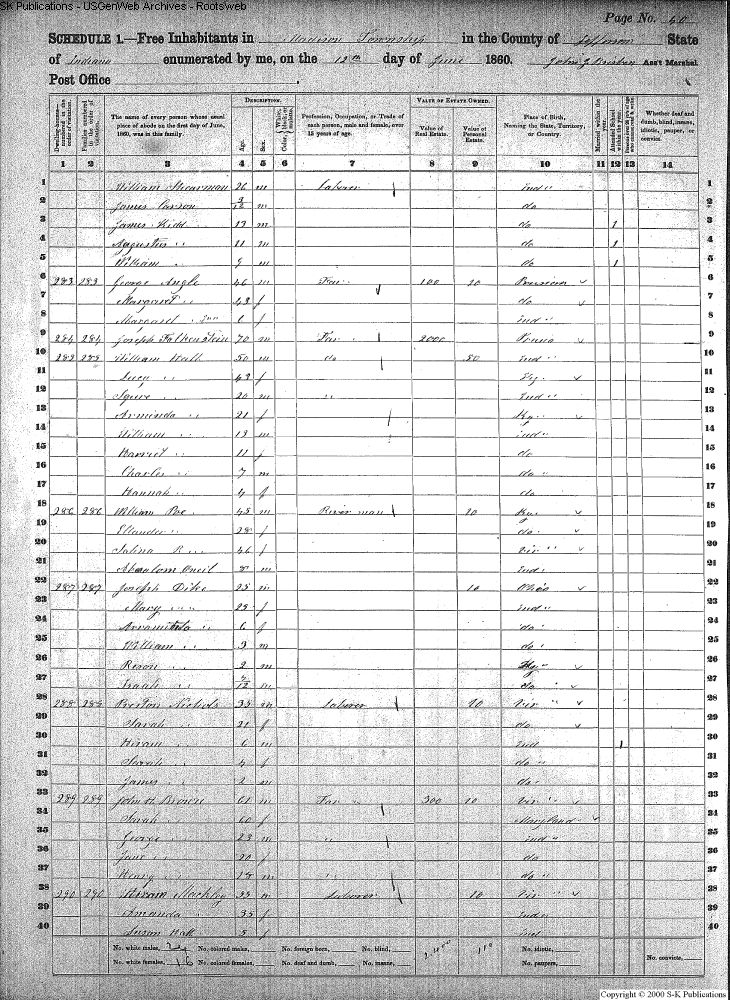 SK Publications - USGenWeb Archives - Rootsweb
Page No. 40
SCHEDULE 1.—Free Inhabitants in Madison Township in the County of Jefferson State
of Indiana enumerated by me, on the 12th day of June 1860. John J Ass't Marshal.
Post Office
DESCRIPTION. VALUE OF ESTATE OWNED.
Dwelling-houses—numbered in the order of visitation. Families numbered in the order of visitation. The name of every person whose usual place of abode on the first day of June, 1860, was in this family. Age. Sex. Color, Profession, Occupation, or Trade of each person, male and female, over 15 years of age. Value of Real Estate. Value of Personal Estate. Place of Birth, Naming the State, Territory, or Country. Married within the year. Attended School within the year. Whether deaf and dumb, blind, insane, idiotic, pauper, or convict.
1 2 3 4 5 6 7 8 9 10 11 12 13 14
1 William Shearman 26 m Laborer Ind 1
2 James Carson m do 2
3 James Kidd 13 m do 1 3
4 Augustus " 11 m do 1 4
5 William " 9 m do 1 5
6 283 283 George Angle 46 m Far 100 20 6
7 Margaret " 43 f do 7
8 Margaret " f Ind 8
9 284 284 Joseph Falkenstein 70 m Far 2000 9
10 William Hall 50 m do 50 Ind 10
11 Lucy " 43 f Ky 11
12 Squire " 20 m " Ind 12
13 Arminda " 21 f Ky 13
14 William " 13 m Ind 14
15 Harriet " 11 f do 15
16 Charles " 7 m do 16
17 Hannah " 4 f do 17
18 286 286 William Poe 45 m River man 20 Ky 18
19 " 28 f do 19
20 46 f Vir 20
21 Absalom Oneil 8 m Ind 21
22 287 287 Joseph Dike 25 m 10 Ohio 22
23 Mary " 23 f Ind 23
24 " 6 f do 24
25 William " 3 m do 25
26 " 2 m Ky 26
27 m do 27
28 288 288 Nichols 35 m Laborer 20 Vir 28
29 Sarah " 21 f do 29
30 Hiram " 6 m Ind 1 30
31 Sarah " 4 f do 31
32 James " 2 m do 32
33 289 289 John H Brown 61 m Far 300 10 Vir 33
34 Sarah " 60 f Maryland 34
35 George " 23 m " Ind 35
36 Jane " 20 f do 36
37 Henry " 18 m " do 37
38 290 290 Hiram 35 m Laborer 10 Vir 38
39 Amanda " 35 f Ind 39
40 Susan Hall 5 f Ind 40
No. white males, 24 No. colored males, No. foreign born, No. blind, No. idiotic, No. convicts,
No. white females, 16 No. colored females, No. deaf and dumb, No. insane, No. paupers,
Copyright © 2000 S-K Publications